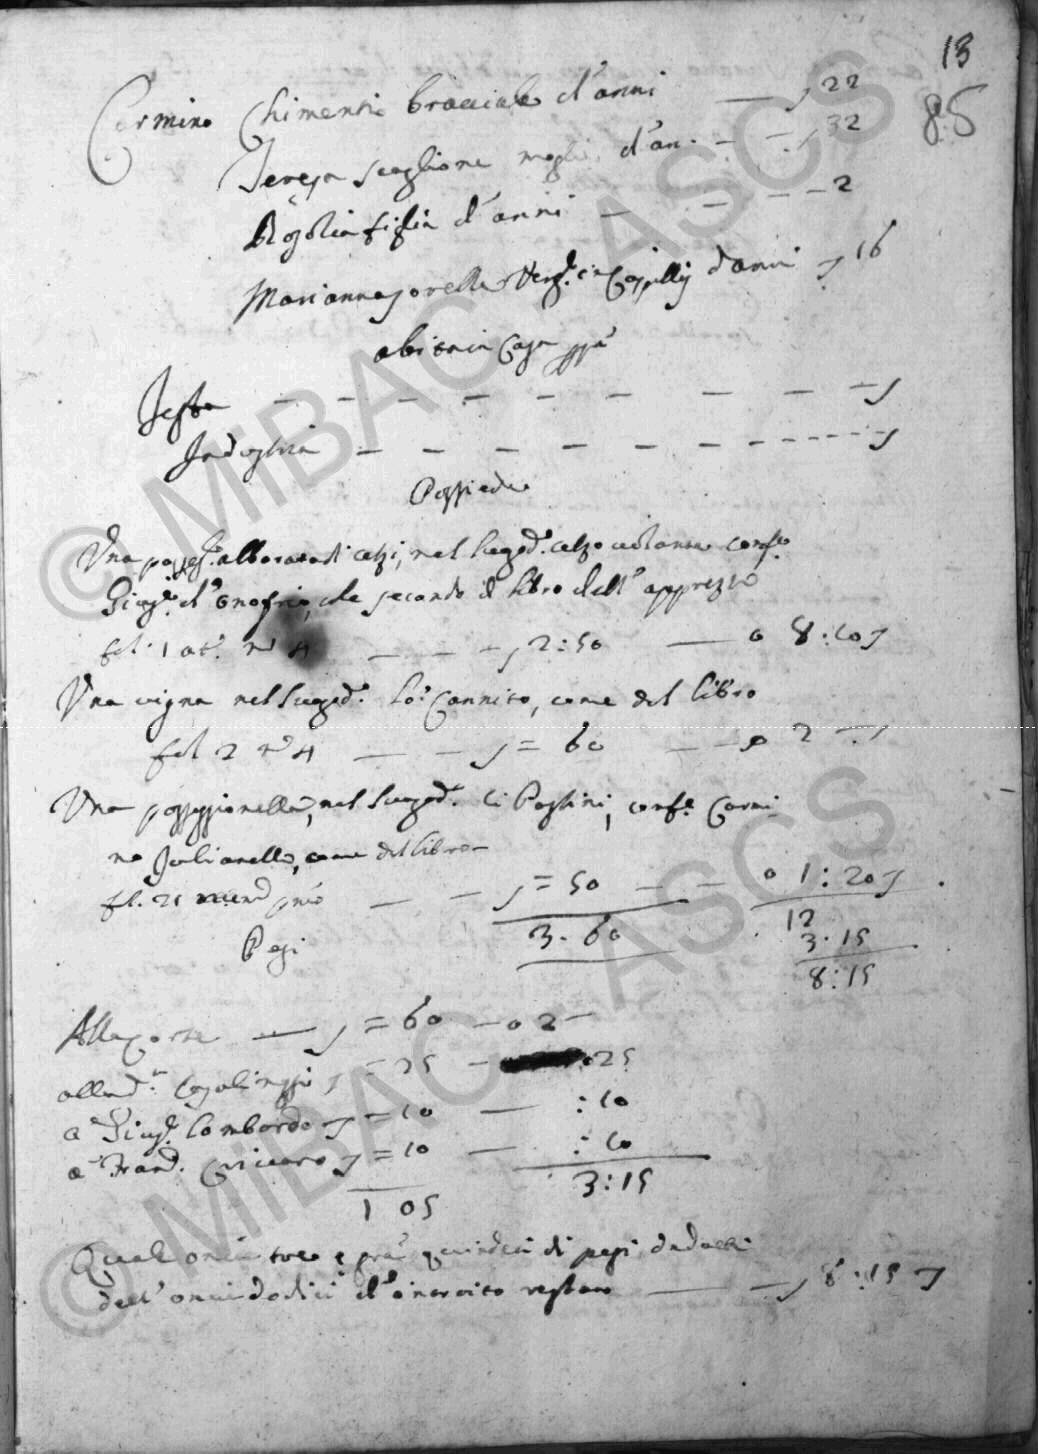 13
85
Carmine Chimenti bracciale d'anni — 22
Teresa Scaglione moglie d'an. — 32
Rosolia figlia d'anni — 2
Marianna sorella Verg.e in Capillis d'anni — 16
abita in Casa pp.a
Testa —
Industria —
Possiede
Una possess.e alborata di celzi, nel luogo d.o celzo conf.e
Giuse.e d'Onofrio, che secondo il libro dell'apprezzo
fol. 1 at. n.o 4 — 2:50 — o 8:10
Una vigna nel luogo d.o lo Cannito, come del libro
fol 2 n.o 4 — = 60 — o 2 —
Una possessionella, nel luogo d.o li Pastini, conf.e Carmi
no Julianello, come del libro
fol. 21 — = 50 — o 1:20
12
Pesi 3. 60 3.15
8:15
Alla Corte — = 60 — o 2 —
alla = 25 — :25
a Giuse.e Lombardo = 10 — :10
a Fran.o = 10 — :10
1 05 3:15
Quali oncie tre e quindeci di pesi dedotti
dell'oncie dodici d'introito restano — 8:15
© MiBAC ASCS
© MiBAC ASCS